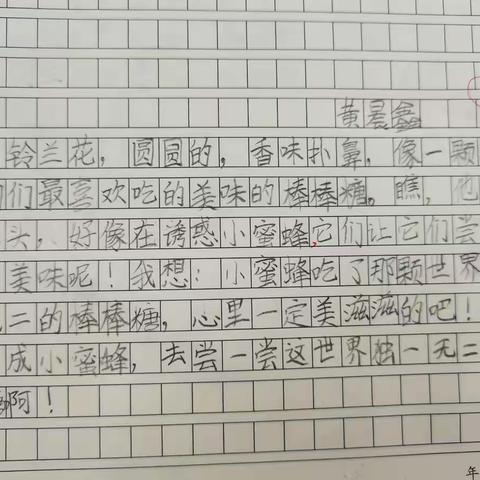 黄晨鑫
铃兰花，圆圆的，香味扑鼻，像一颗
们最喜欢吃的美味的棒棒糖。瞧，他
头，好像在诱惑小蜜蜂，它们让它们尝
美味呢！我想：小蜜蜂吃了那颗世界
二的棒棒糖，心里一定美滋滋的吧！
成小蜜蜂，去尝一尝这世界独一无二
啊！
年